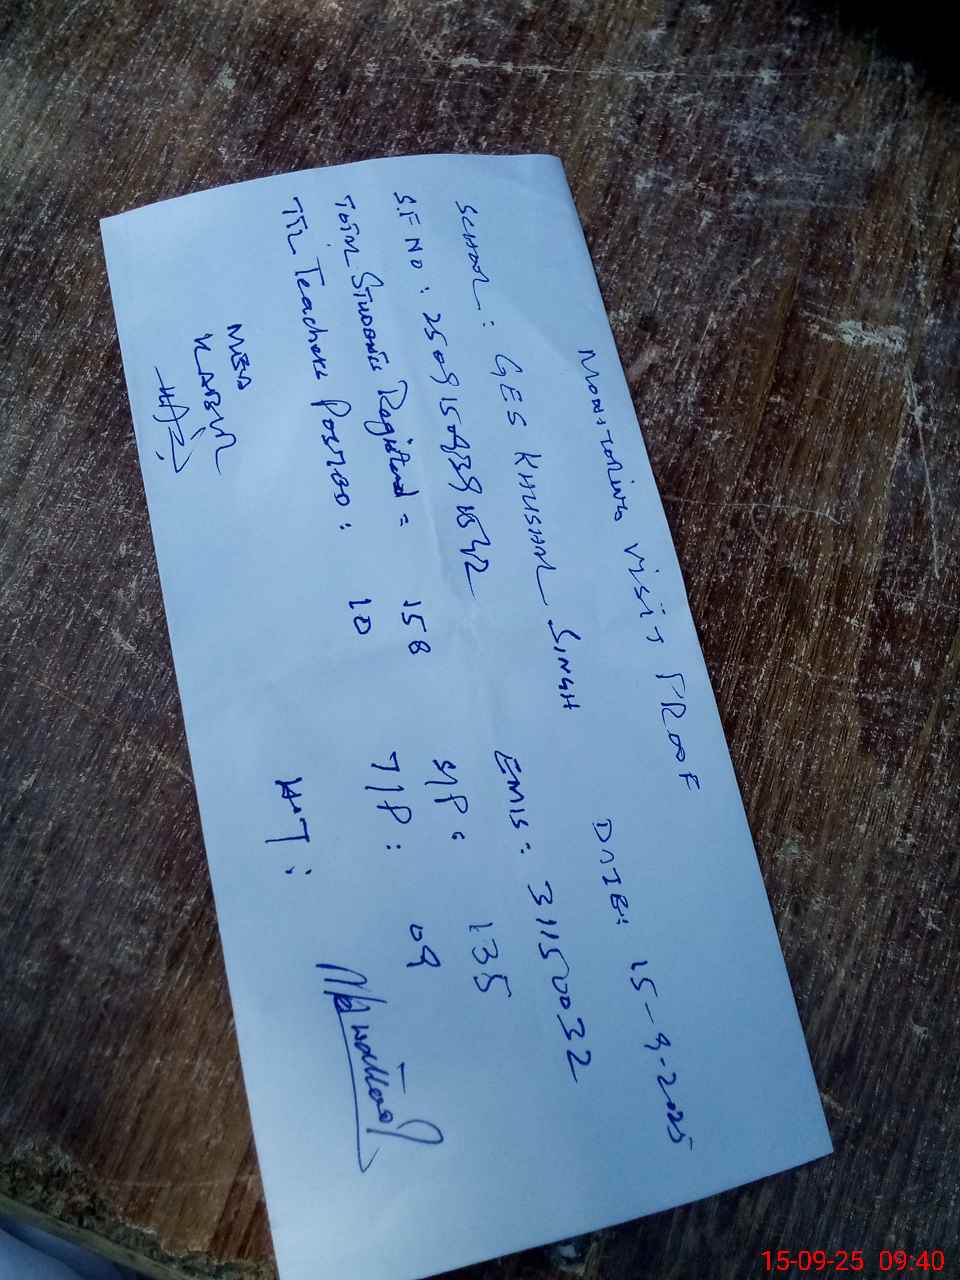 MONITORING VISIT PROOF
DATE: 15-9-2025
SCHOOL: GES KHUSHAL SINGH
EMIS: 31150032
S.F NO:
TOTAL STUDENTS Registered = 158
S/P: 135
TTL Teachers POSTED: 10
T/P: 09
H.T:
MEA
KABIR
15-09-25 09:40